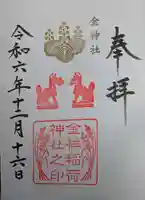 奉拝
金神社
令和六年十二月十六日
金神稲荷
神社之印